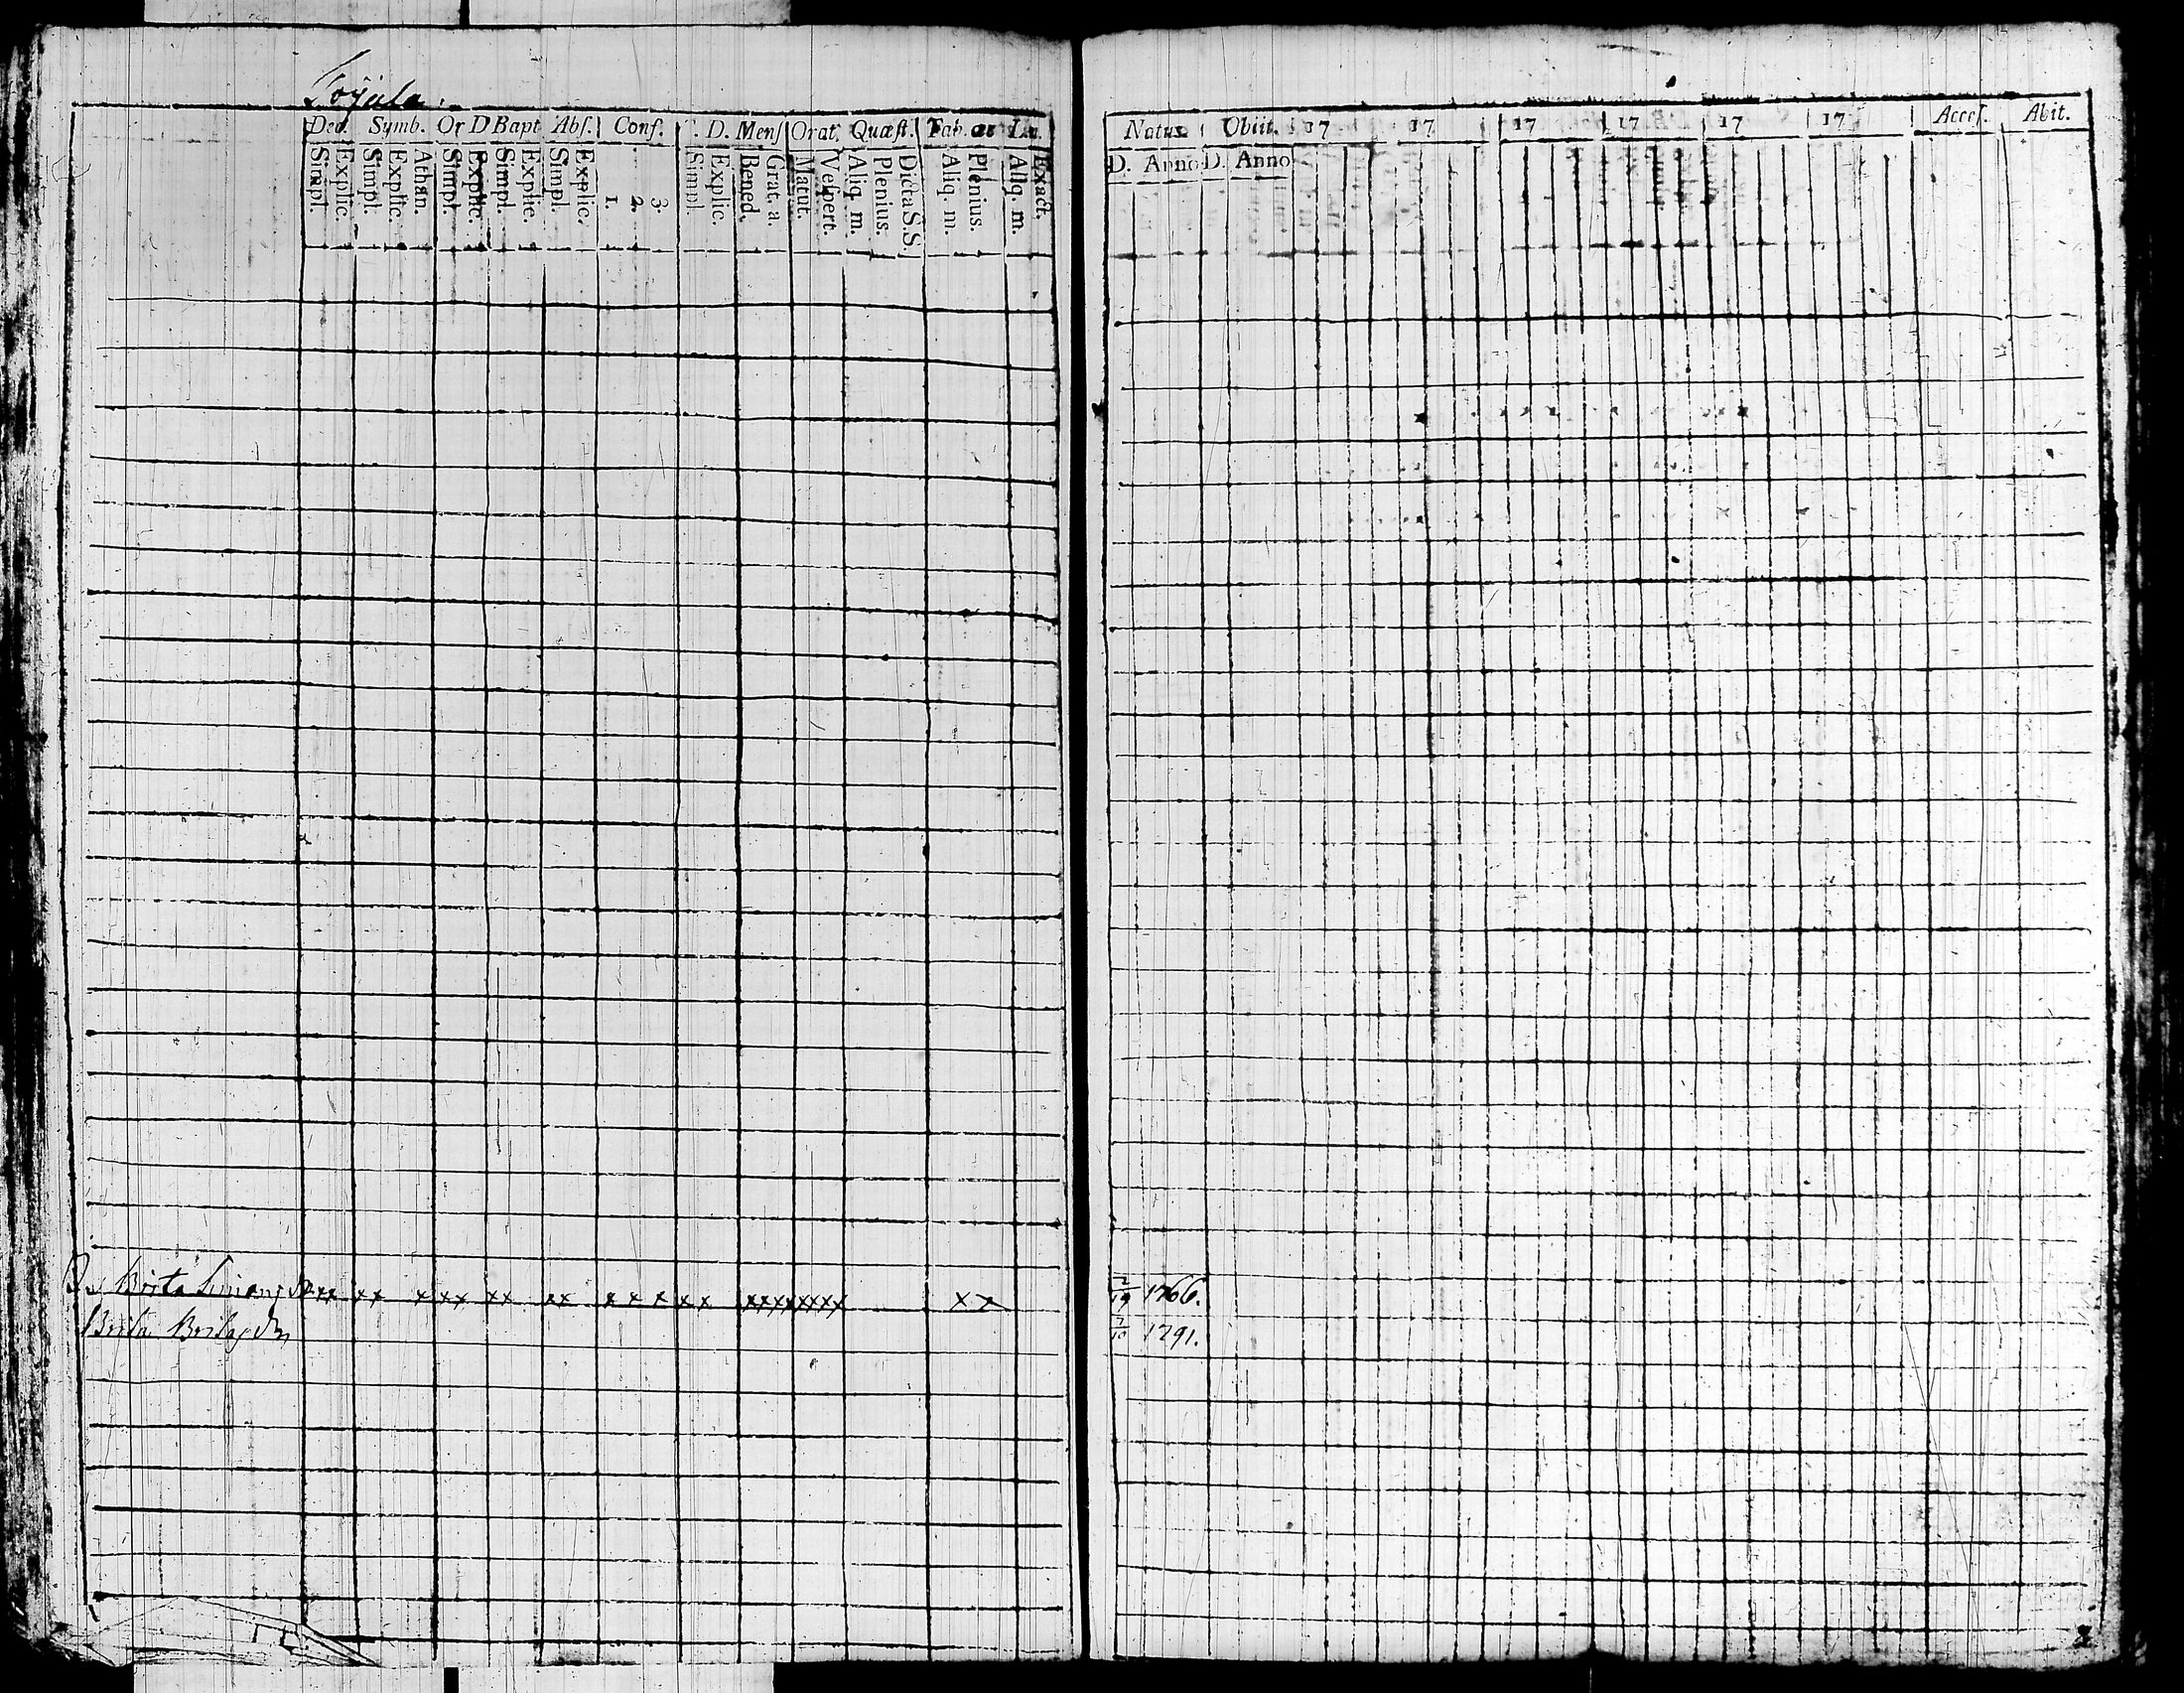 Töÿala.
Dec. Symb. Or D Bapt Abs. Conf. C. D. Mens Orat. Quæst. Tab. œc Lit.
Simpl. Explic. Simpl. Explic. Athan. Simpl. Explic. Simpl. Explic. Simpl. Explic. 1. 2. 3. Simpl. Explic. Bened. Grat. a. Matut. Vespert. Aliq. m. Plenius. Dicta S.S. Aliq. m. Plenius. Aliq. m. Exact.
Natus. Obiit. 17 17 17 17 17 17 Acces. Abit.
D. Anno D. Anno
Brita xx xx x xx xx xx x x x x x xxxxxxxx x x 2/19 1766.
Brita Britas dr 7/10 1791.